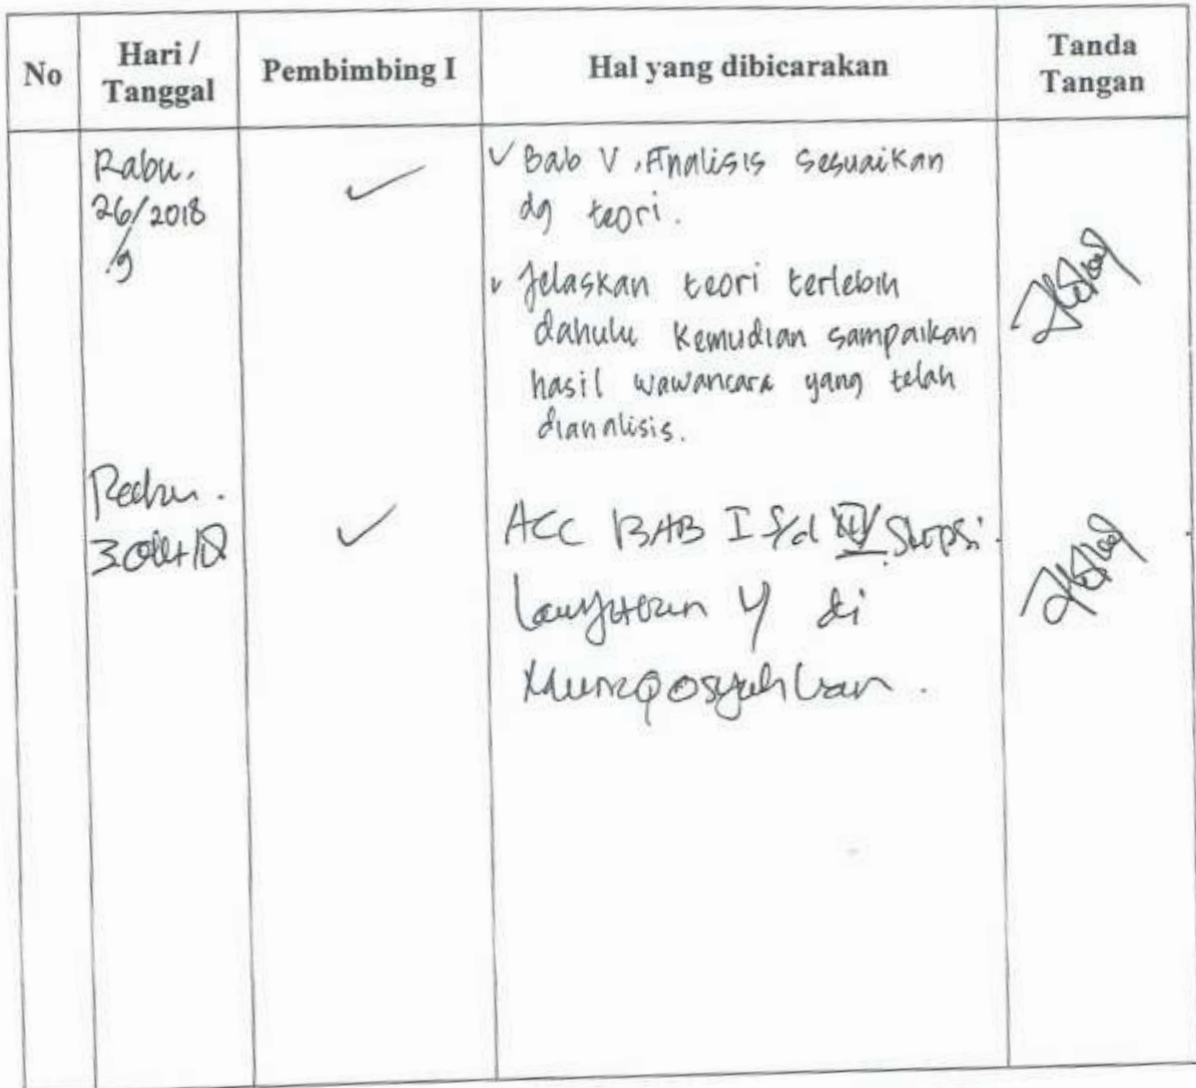 No
Hari /
Tanggal
Pembimbing I
Hal yang dibicarakan
Tanda
Tangan
Rabu.
26/2018
/9
✓
✓ Bab V. Analisis sesuaikan
dg teori.
✓ Jelaskan teori terlebih
dahulu kemudian sampaikan
hasil wawancara yang telah
diannalisis.
3 Okt
✓
ACC BAB I s/d
di